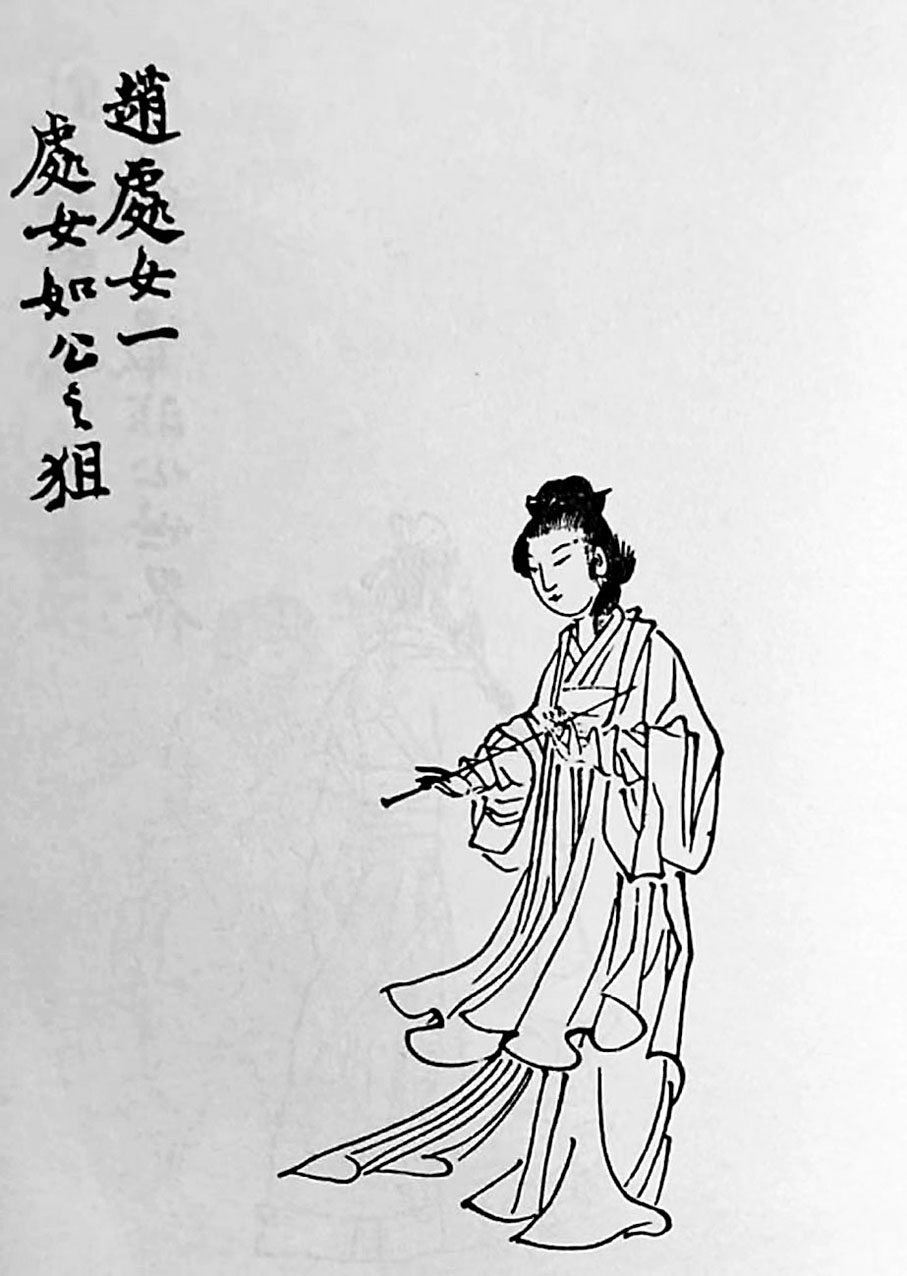 趙處女一
處女如公之狙